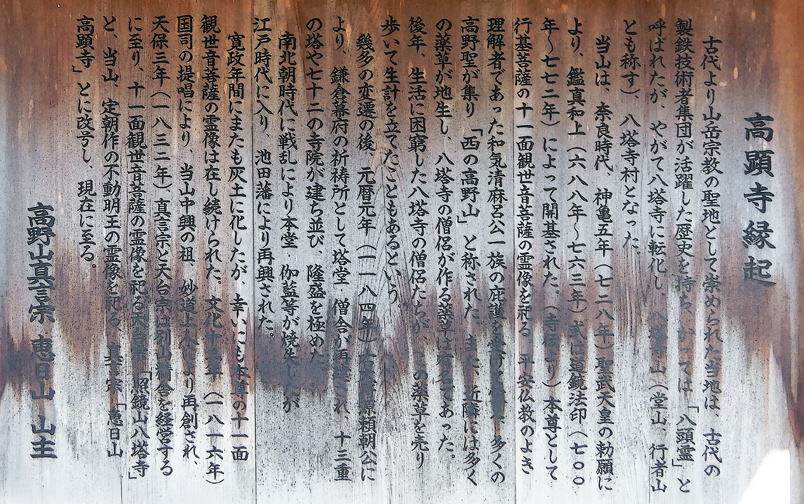 高顕寺縁起
古代より山岳宗教の聖地として崇められた当地は、古代の
製鉄技術者集団が活躍した歴史を持ち、かつては「八頭霊」と
呼ばれたが、やがて八塔寺に転化し、八塔寺山（堂山、行者山
とも称す）、八塔寺村となった。
当山は、奈良時代、神亀五年（七二八年）聖武天皇の勅願に
より、鑑真和上（六八八年〜七六三年）弐伝道鏡法印（七〇〇
年〜七七二年）によって開基された。（寺伝より）本尊として
行基菩薩の十一面観世音菩薩の霊像を祀る。平安仏教のよき
理解者であった和気清麻呂公一族の庇護を受けて 多くの
高野聖が集り「西の高野山」と称された。また、近隣には多く
の薬草が地生し、八塔寺の僧侶が作る薬草は有名であった。
後年、生活に困窮した八塔寺の僧侶たちが、この薬草を売り
歩いて生計を立てたこともあるという。
幾多の変遷の後、元暦元年（一一八四年） 源頼朝公に
より、鎌倉幕府の祈祷所として塔堂、僧舎が再建され、十三重
の塔や七十二の寺院が建ち並び、隆盛を極めた
南北朝時代に戦乱により本堂・伽藍等が焼失したが
江戸時代に入り、池田藩により再興された。
寛政年間にまたも灰土に化したが、幸いにも本尊の十一面
観世音菩薩の霊像は在し続けられた。文化十三年（一八一六年）
国司の提唱により、当山中興の祖、妙道上人により再創され、
天保三年（一八三二年）真言宗と天台宗は別山宿舎を経営する
に至り、十一面観世音菩薩の霊像を祀る天台宗「照鏡山八塔寺」
と、当山、定朝作の不動明王の霊像を祀る、真言宗「恵日山
高顕寺」とに改号し、現在に至る。
高野山真言宗 恵日山 山主